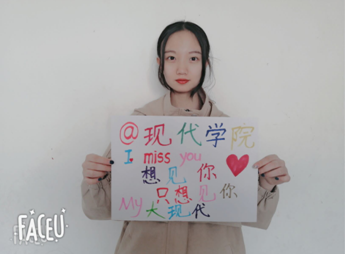 @现代学院
I miss you
想见你
只想见你
My大现代
FACEU